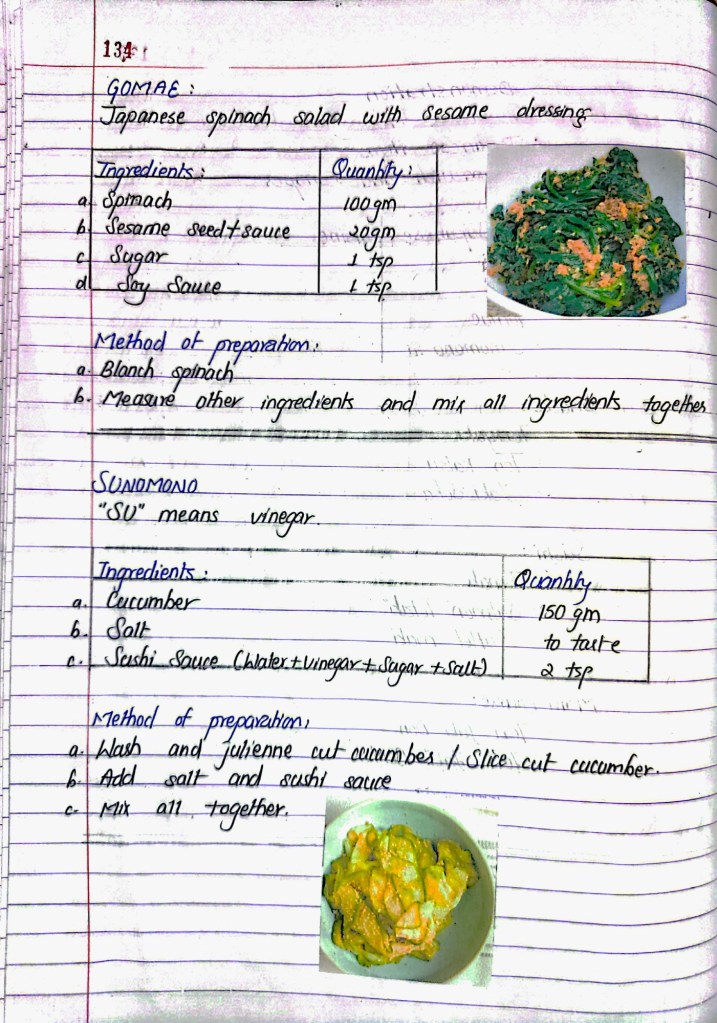 134
GOMAE :
Japanese spinach salad with sesame dressing
Ingredients : Quantity :
a. Spinach 100gm
b. Sesame seed+sauce 20gm
c. Sugar 1 tsp
d. Soy Sauce 1 tsp
Method of preparation :
a. Blanch spinach
b. Measure other ingredients and mix all ingredients together
SUNOMONO
"SU" means vinegar.
Ingredients : Quantity
a. Cucumber 150 gm
b. Salt to taste
c. Sushi Sauce (Water+vinegar+Sugar+Salt) 2 tsp
Method of preparation,
a. Wash and julienne cut cucumber / Slice cut cucumber.
b. Add salt and sushi sauce
c. Mix all together.